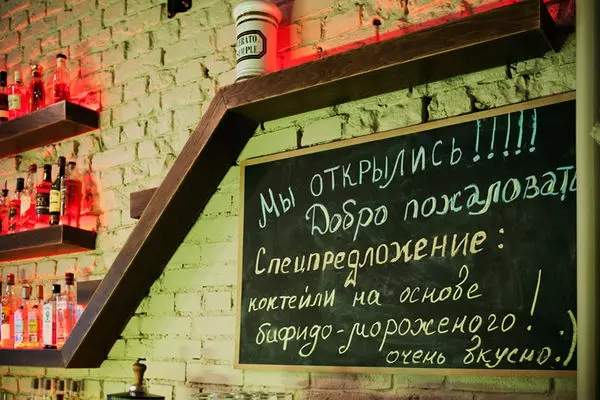 Мы открылись!!!!!
Добро пожаловать
Спецпредложение:
коктейли на основе
бафидо-мороженого!
очень вкусно:)